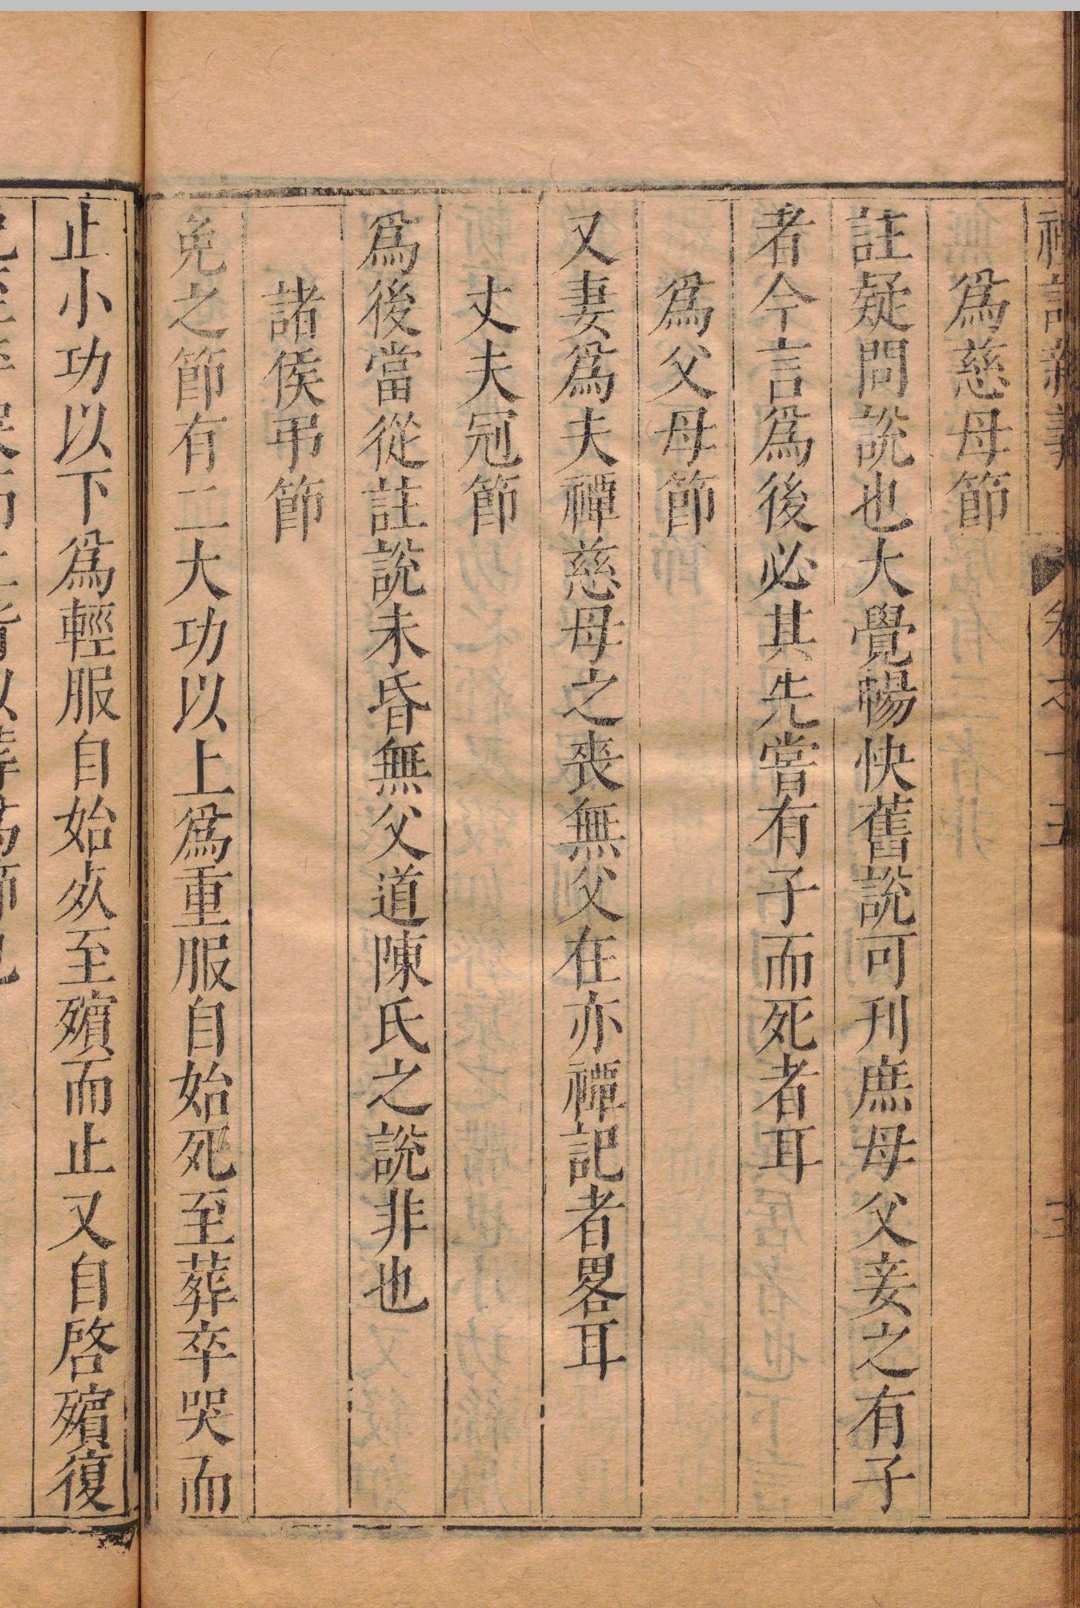 禮記新義 卷之十五
爲慈母節
註疑問說也大覺暢快舊說可刋庶母父妾之有子
者今言爲後必其先嘗有子而死者耳
爲父母節
又妻爲夫禫慈母之喪無父在亦禫記者畧耳
丈夫冠節
爲後當從註說未昏無父道陳氏之說非也
諸侯弔節
免之節有二大功以上爲重服自始死至葬卒哭而
止小功以下爲輕服自始死至殯而止又自啓殯復